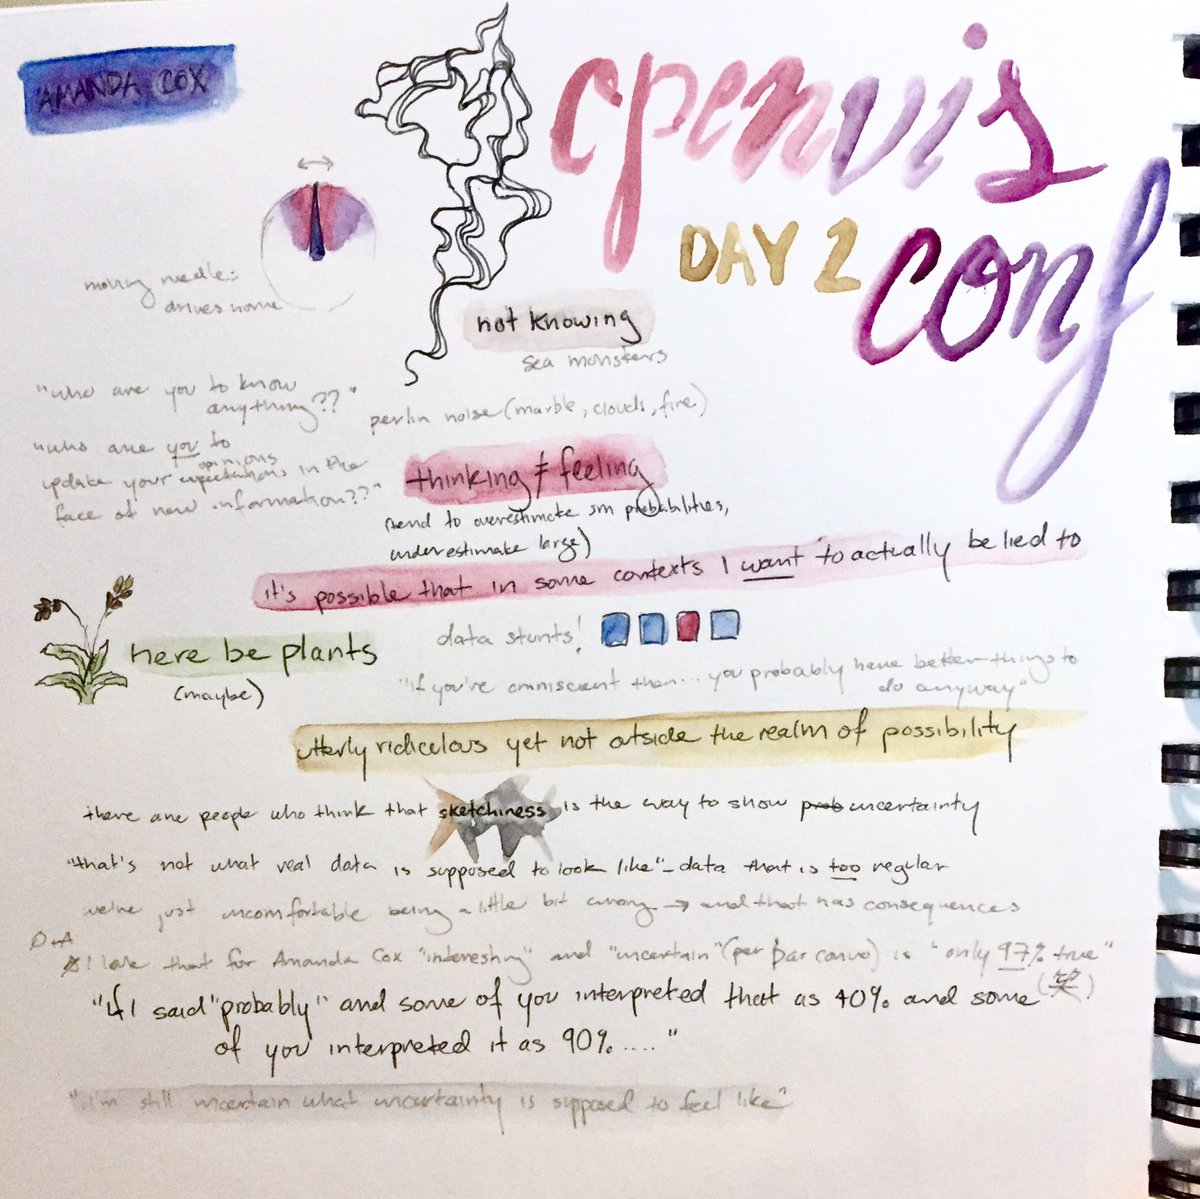 AMANDA COX
openvis
DAY 2
conf
moving needle:
drives home
not knowing
sea monsters
"who are you to know
anything??"
perlin noise (marble, clouds, fire)
"who are you to
update your expectations opinions in the
face of new information??"
thinking ≠ feeling
(tend to overestimate sm probabilities,
underestimate large)
it's possible that in some contexts I want to actually be lied to
data stunts!
here be plants
(maybe)
"if you're omniscient then... you probably have better things to
do anyway"
utterly ridiculous yet not outside the realm of possibility
there are people who think that sketchiness is the way to show prob uncertainty
"that's not what real data is supposed to look like" - data that is too regular
we're just uncomfortable being a little bit wrong → and that has consequences
QnA
I love that for Amanda Cox "interesting" and "uncertain" (per bar convo) is "only 97% true"
(笑)
"if I said "probably" and some of you interpreted that as 40% and some
of you interpreted it as 90%...."
"i'm still uncertain what uncertainty is supposed to feel like"